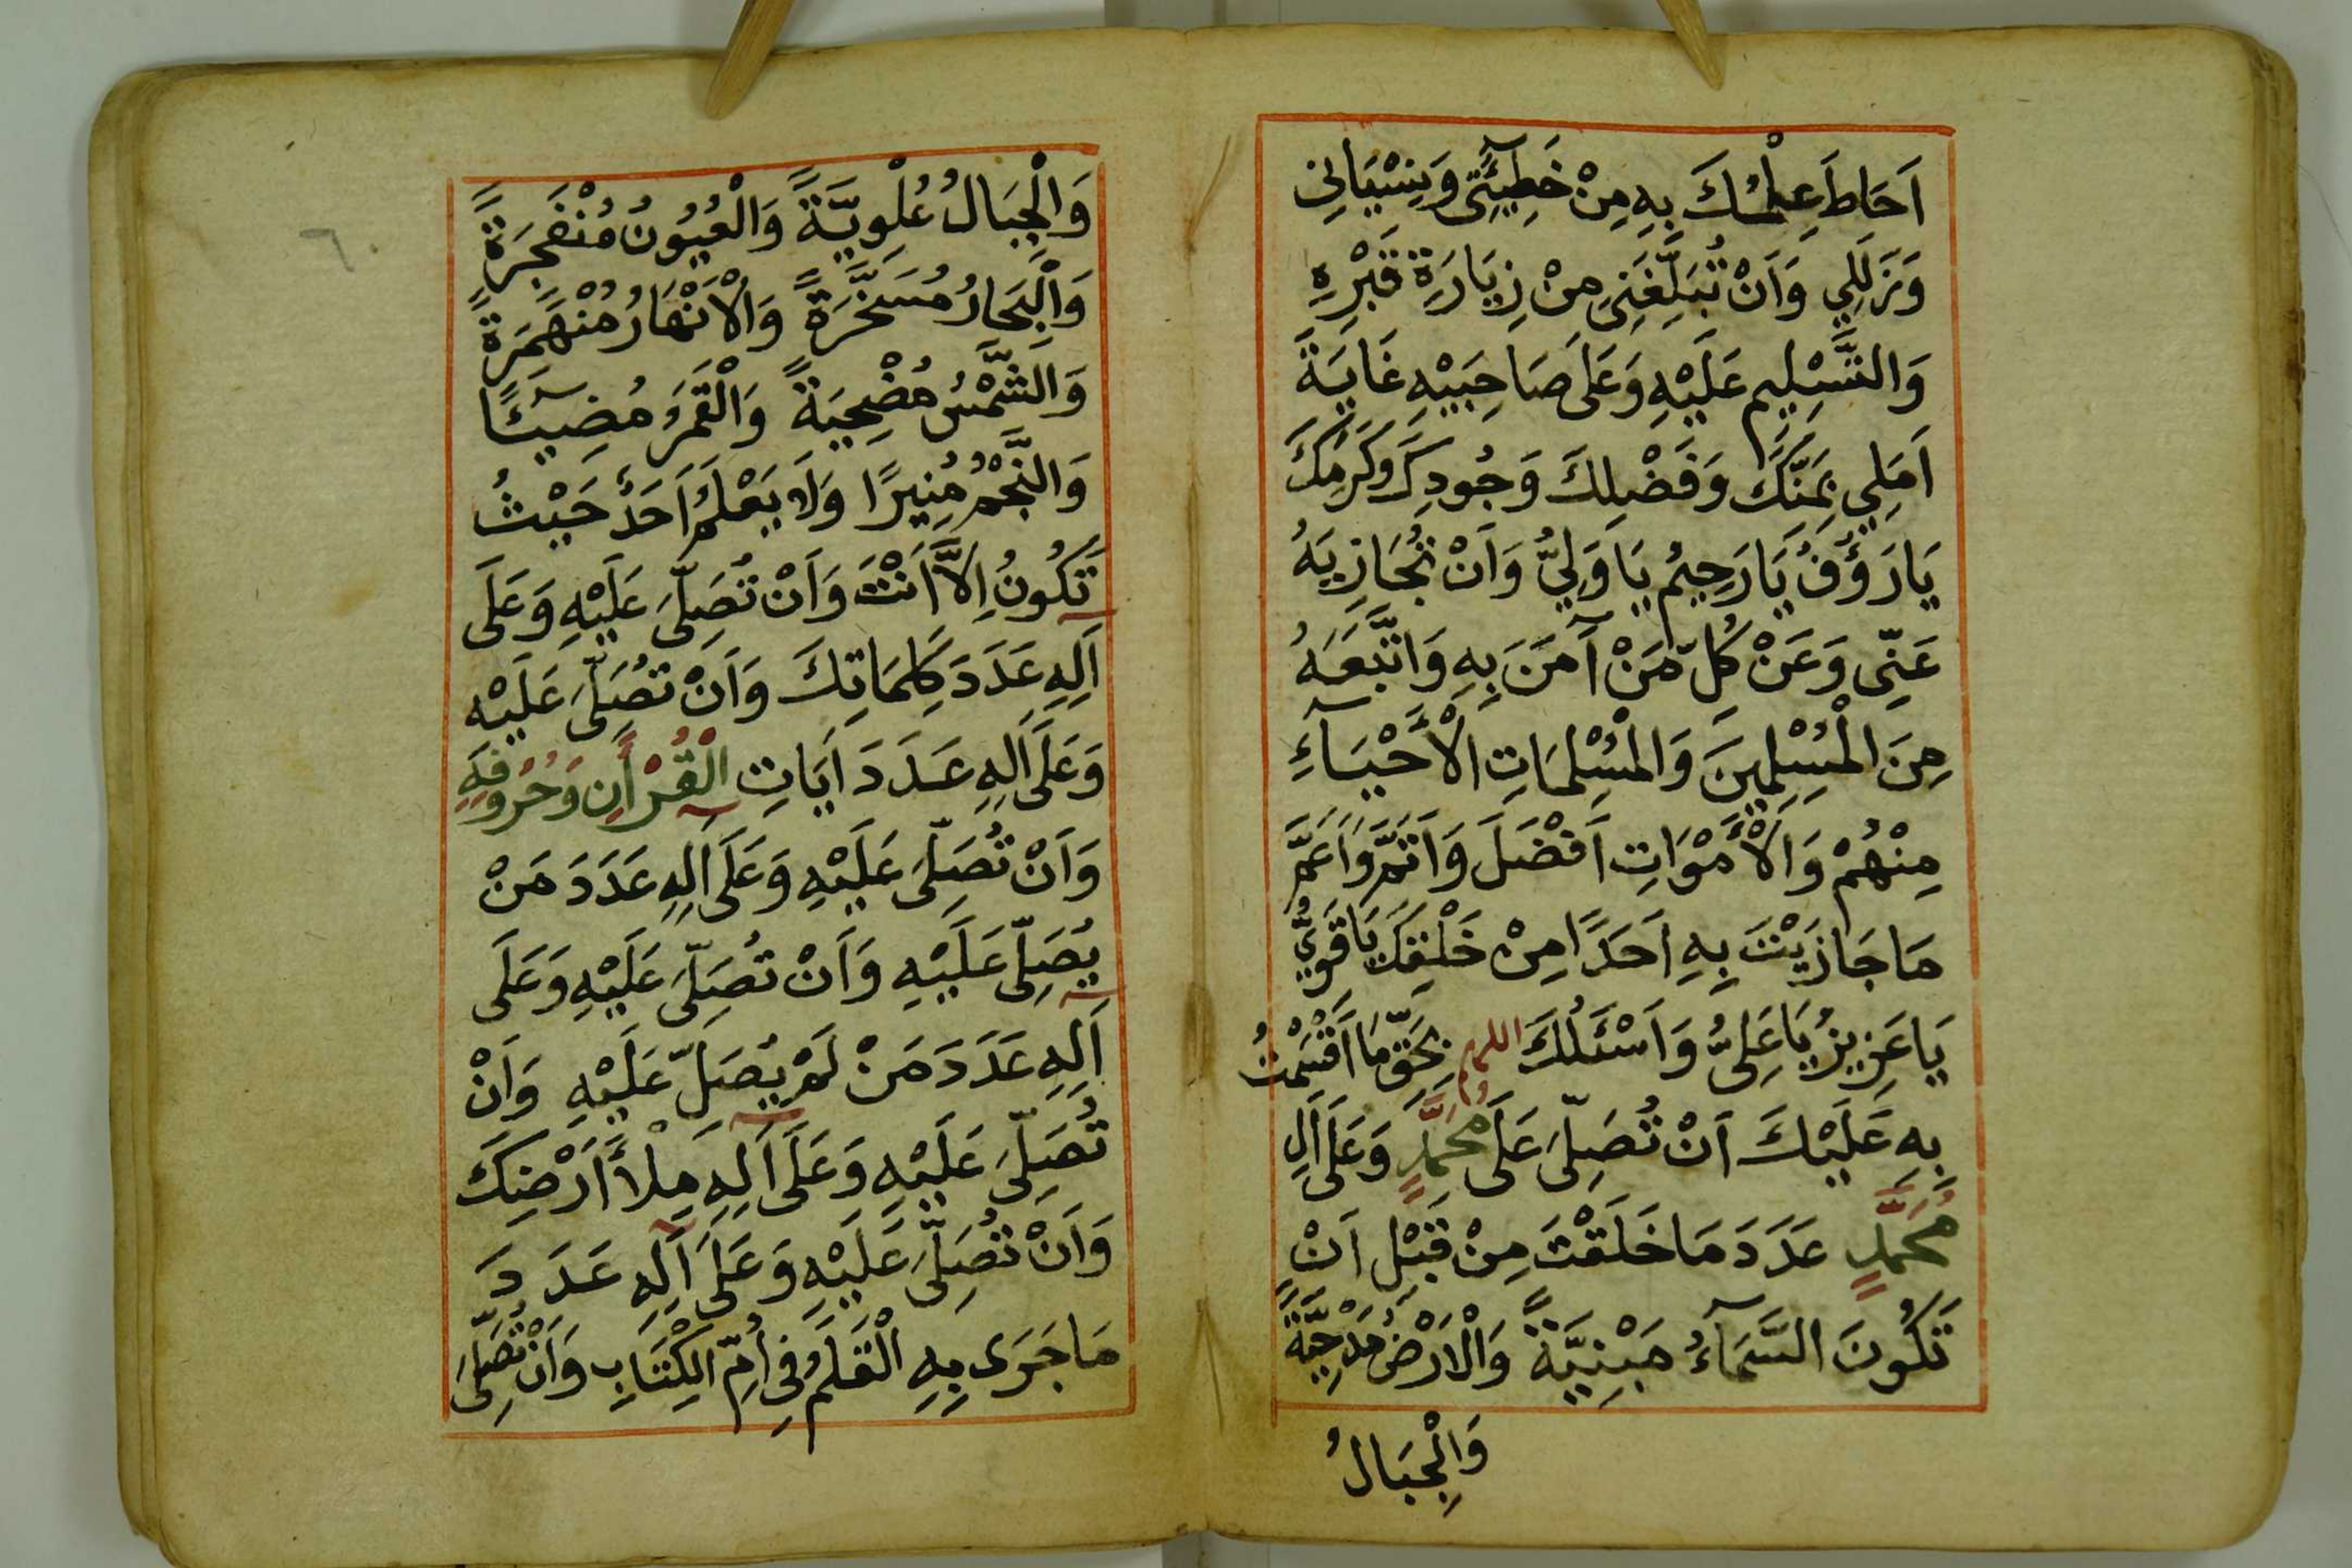 اَحَاطَ عِلْمُكَ بِهِ مِنْ خَطِيْٓئَتِى وَنِسْيَانِى
وَزَلَلِي وَاَنْ تُبَلِّغَنِى مِنْ زِيَارَةِ قَبْرِهِ
وَالتَّسْلِيمِ عَلَيْهِ وَعَلَى صَاحِبَيْهِ غَايَةَ
اَمَلِي بِمَنِّكَ وَفَضْلِكَ وَجُودِكَ وَكَرَمِكَ
يَا رَؤُفُ يَا رَحِيمُ يَا وَلِيُّ وَاَنْ تُجَازِيَهُ
عَنِّى وَعَنْ كُلِّ مَنْ آمَنَ بِهِ وَاتَّبَعَهُ
مِنَ الْمُسْلِمِينَ وَالْمُسْلِمَاتِ الْأَحْيَآءِ
مِنْهُمْ وَالْأَمْوَاتِ اَفْضَلَ وَاَتَمَّ وَاَعَمَّ
مَا جَازَيْتَ بِهِ اَحَدًا مِنْ خَلْقِكَ يَا قَوِيُّ
يَا عَزِيزُ يَا عَلِىُّ وَاَسْئَلُكَ اللهم بِحَقِّ مَا اَقْسَمْتُ
بِهِ عَلَيْكَ اَنْ تُصَلِّىَ عَلَى مُحَمَّدٍ وَعَلَى اَلِ
مُحَمَّدٍ عَدَدَ مَا خَلَقْتَ مِنْ قَبْلِ اَنْ
تَكُونَ السَّمَآءُ مَبْنِيَّةً وَالْاَرْضُ مَدْحِيَّةً
وَالْجِبَالُ
٦٠
وَالْجِبَالُ عُلْوِيَّةً وَالْعُيُونُ مُنْفَجِرَةً
وَالْبِحَارُ مُسَخَّرَةً وَالْاَنْهَارُ مُنْهَمِرَةً
وَالشَّمْسُ مُضْحِيَةً وَالْقَمَرُ مُضِيْٓئًا
وَالنَّجْمُ مُنِيرًا وَلَا يَعْلَمُ اَحَدٌ حَيْثُ
تَكُونُ اِلَّا اَنْتَ وَاَنْ تُصَلِّىَ عَلَيْهِ وَعَلَى
اَلِهِ عَدَدَ كَلِمَاتِكَ وَاَنْ تُصَلِّىَ عَلَيْهِ
وَعَلَى اَلِهِ عَدَدَ اَيَاتِ الْقُرْأَنِ وَحُرُوفِهِ
وَاَنْ تُصَلِّىَ عَلَيْهِ وَعَلَى اَلِهِ عَدَدَ مَنْ
يُصَلِّى عَلَيْهِ وَاَنْ تُصَلِّىَ عَلَيْهِ وَعَلَى
اَلِهِ عَدَدَ مَنْ لَمْ يُصَلِّ عَلَيْهِ وَاَنْ
تُصَلِّىَ عَلَيْهِ وَعَلَى اَلِهِ مِلْأَ اَرْضِكَ
وَاَنْ تُصَلِّىَ عَلَيْهِ وَعَلَى اَلِهِ عَدَدَ
مَا جَرَى بِهِ الْقَلَمُ فِى اُمِّ الْكِتَابِ وَاَنْ تُصَلِّىَ